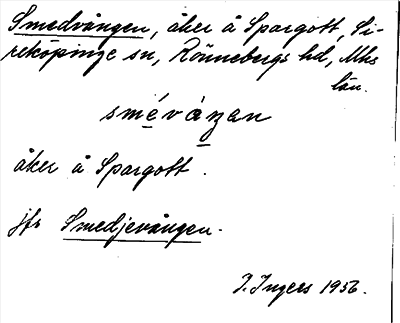 Smedvången, åker å Spargott, Si-
reköpinge sn, Rönnebergs hd, Mhs
län.
smévåŋan
åker å Spargott.
jfr Smedjevången.
I. Ingers 1956.